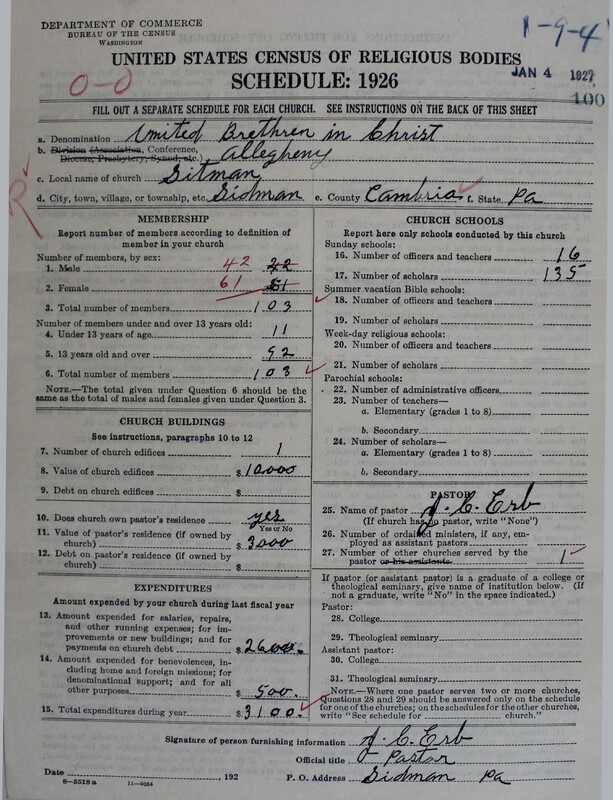 DEPARTMENT OF COMMERCE
BUREAU OF THE CENSUS
WASHINGTON
1-9-4
UNITED STATES CENSUS OF RELIGIOUS BODIES
SCHEDULE: 1926
0-0
JAN 4 1927
100
FILL OUT A SEPARATE SCHEDULE FOR EACH CHURCH. SEE INSTRUCTIONS ON THE BACK OF THIS SHEET
a. Denomination United Brethren in Christ
b. Division (Association, Conference, Diocese, Presbytery, Synod, etc.) Allegheny
c. Local name of church Sitman
d. City, town, village, or township, etc. Sidman e. County Cambria f. State Pa
R
MEMBERSHIP
Report number of members according to definition of
member in your church
Number of members, by sex:
1. Male 42
2. Female 61
3. Total number of members 103
Number of members under and over 13 years old:
4. Under 13 years of age 11
5. 13 years old and over 92
6. Total number of members 103
NOTE.—The total given under Question 6 should be the
same as the total of males and females given under Question 3.
CHURCH BUILDINGS
See instructions, paragraphs 10 to 12
7. Number of church edifices 1
8. Value of church edifices $ 10000
9. Debt on church edifices $
10. Does church own pastor's residence yes
Yes or No
11. Value of pastor's residence (if owned by
church) $ 3000
12. Debt on pastor's residence (if owned by
church) $
EXPENDITURES
Amount expended by your church during last fiscal year
13. Amount expended for salaries, repairs,
and other running expenses; for im-
provements or new buildings; and for
payments on church debt $ 2600.
14. Amount expended for benevolences,
including home and foreign missions; for
denominational support; and for all
other purposes $ 500.
15. Total expenditures during year $ 3100.
CHURCH SCHOOLS
Report here only schools conducted by this church
Sunday schools:
16. Number of officers and teachers 16
17. Number of scholars 135
Summer vacation Bible schools:
18. Number of officers and teachers
19. Number of scholars
Week-day religious schools:
20. Number of officers and teachers
21. Number of scholars
Parochial schools:
22. Number of administrative officers
23. Number of teachers—
a. Elementary (grades 1 to 8)
b. Secondary
24. Number of scholars—
a. Elementary (grades 1 to 8)
b. Secondary
PASTOR
25. Name of pastor J. C. Erb
(If church has no pastor, write "None")
26. Number of ordained ministers, if any, em-
ployed as assistant pastors
27. Number of other churches served by the
pastor or his assistants 1
If pastor (or assistant pastor) is a graduate of a college or
theological seminary, give name of institution below. (If
not a graduate, write "No" in the space indicated.)
Pastor:
28. College
29. Theological seminary
Assistant pastor:
30. College
31. Theological seminary
NOTE.—Where one pastor serves two or more churches,
Questions 28 and 29 should be answered only on the schedule
for one of the churches; on the schedules for the other churches,
write "See schedule for church."
Signature of person furnishing information J. C. Erb
Official title Pastor
Date 192 P. O. Address Sidman Pa
8-5518 a 11-9054